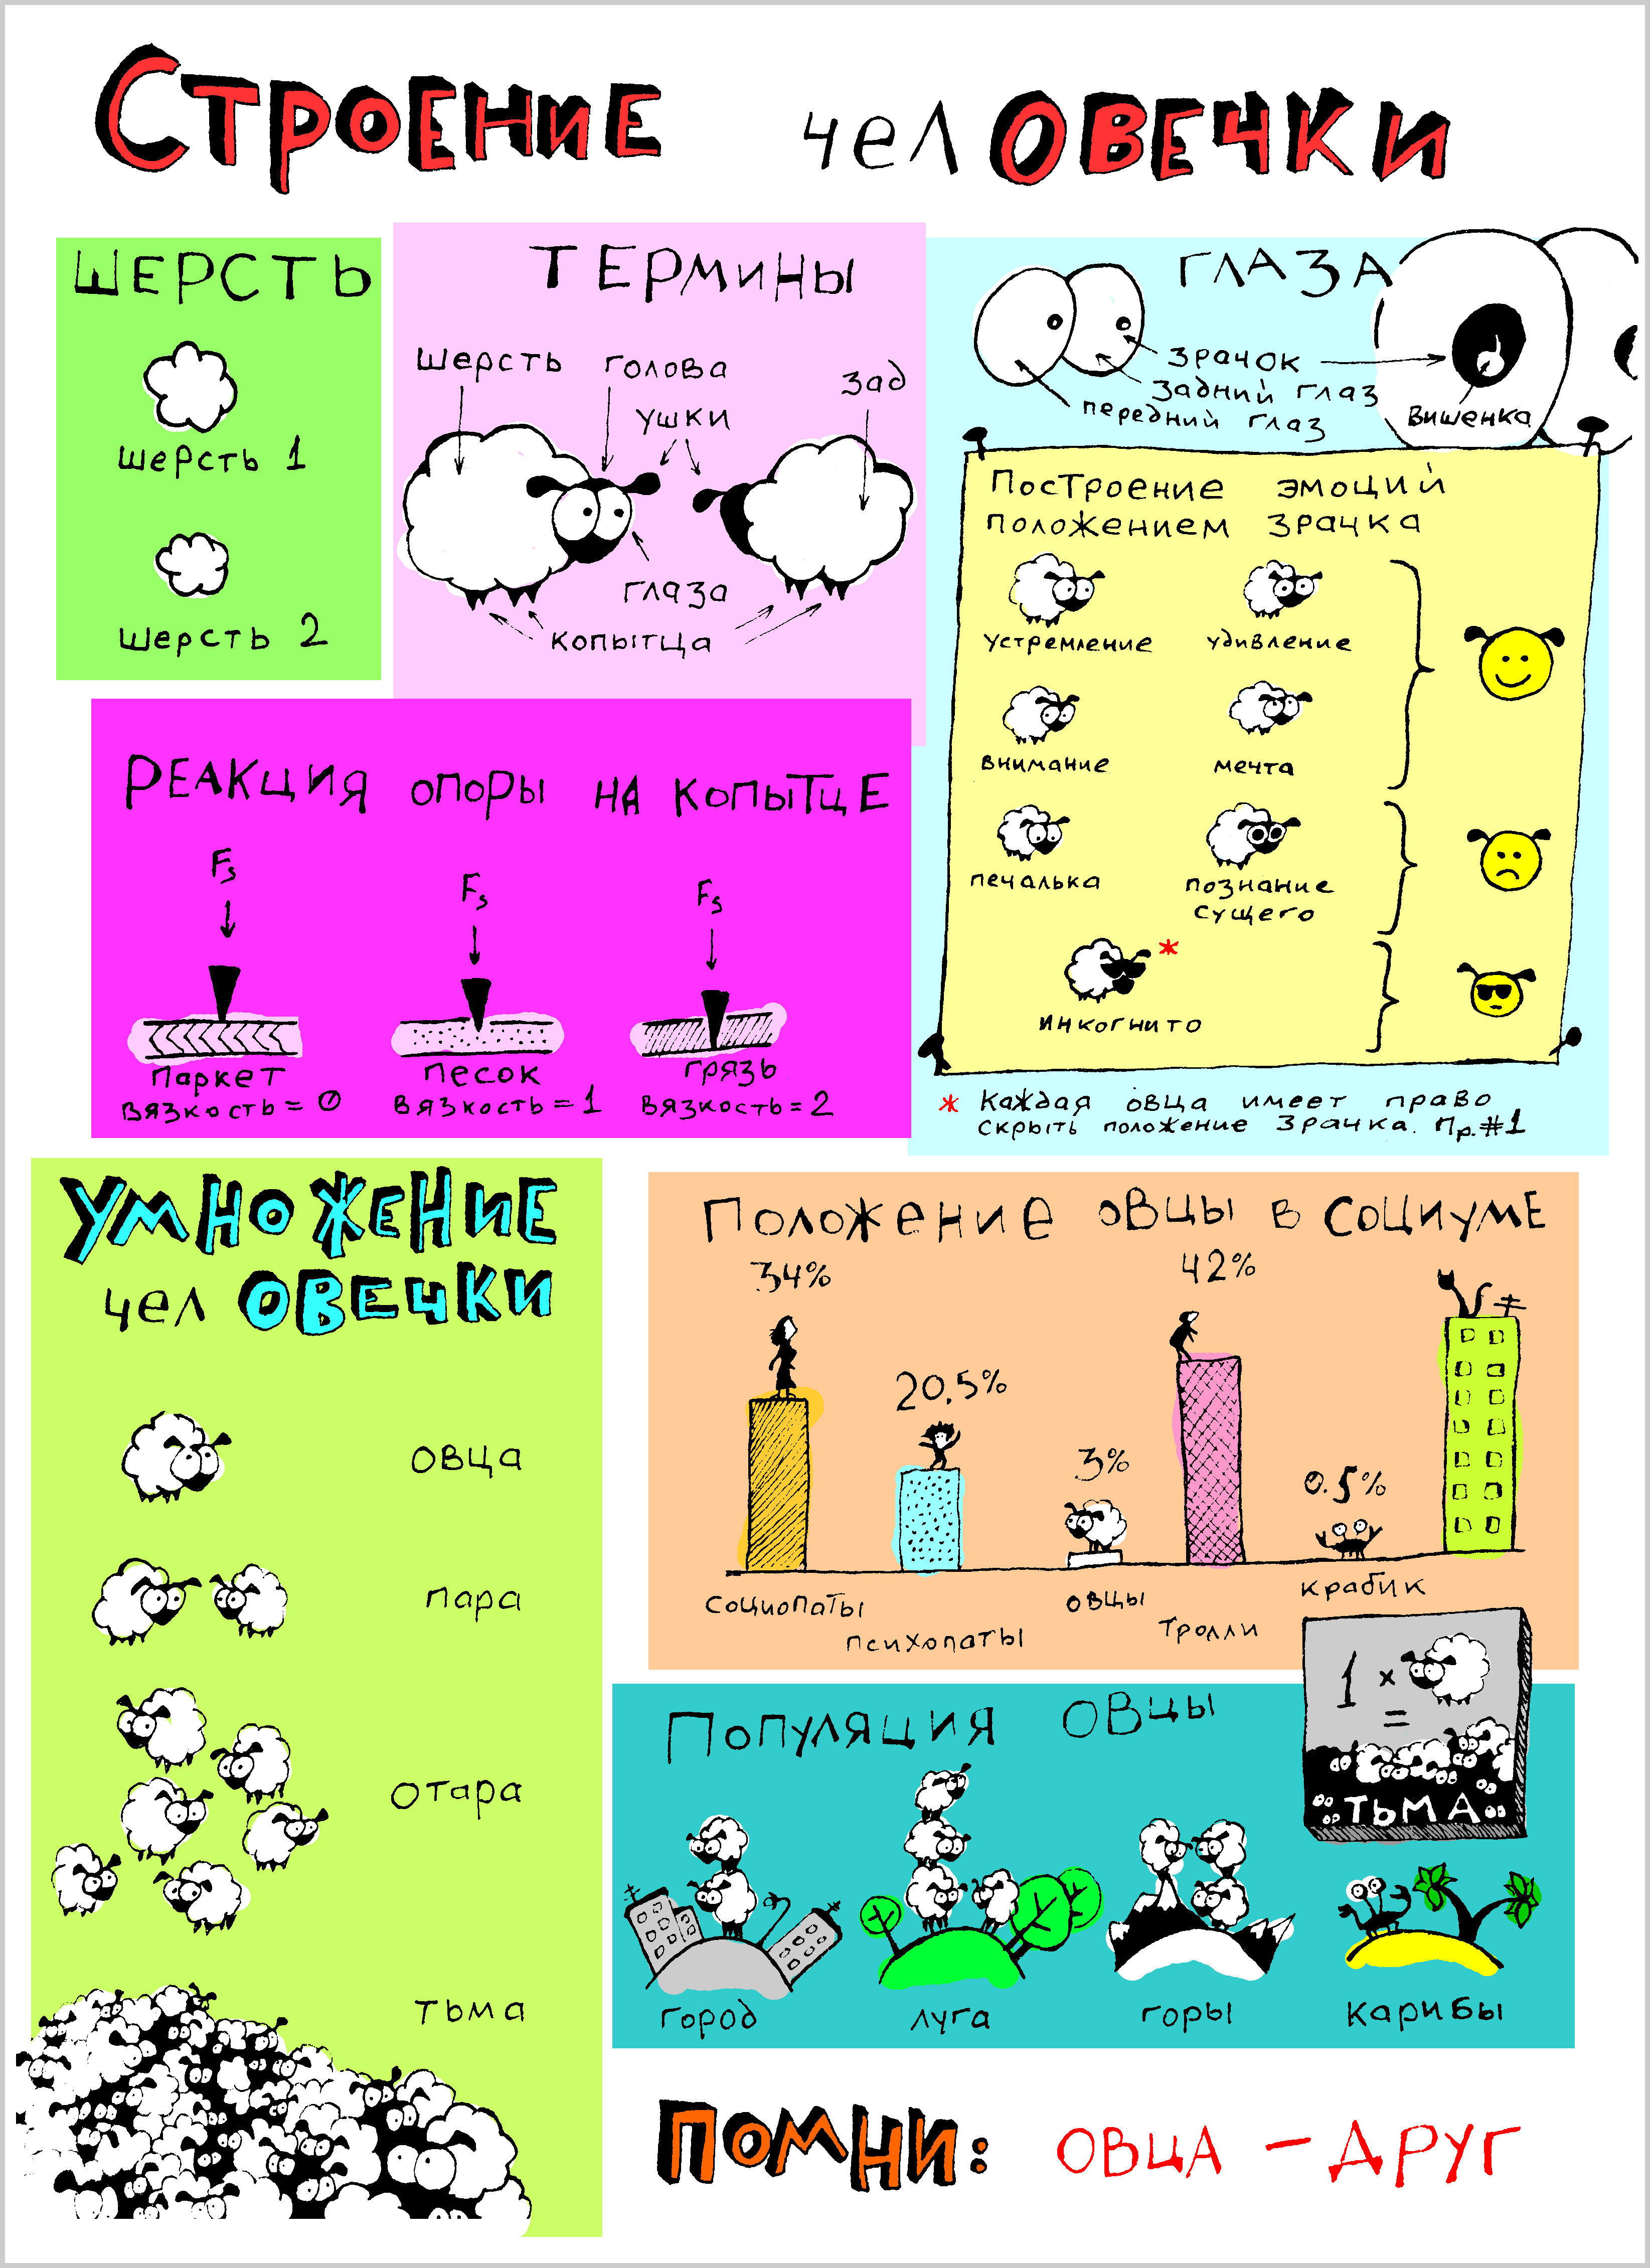 СТРОЕНИЕ челОВЕЧКИ
ШЕРСТЬ
шерсть 1
шерсть 2
ТЕРМИНЫ
шерсть
голова
ушки
зад
глаза
копытца
ГЛАЗА
зрачок
задний глаз
передний глаз
вишенка
Построение эмоций
положением зрачка
устремление
удивление
внимание
мечта
печалька
познание
сущего
*
инкогнито
* Каждая овца имеет право
скрыть положение зрачка. Пр.#1
РЕАКЦИЯ ОПОРЫ НА КОПЫТЦЕ
Fs
Fs
Fs
паркет
вязкость = 0
песок
вязкость = 1
грязь
вязкость = 2
УМНОЖЕНИЕ
чел ОВЕЧКИ
овца
пара
отара
тьма
Положение овцы в социуме
34%
20.5%
3%
42%
0.5%
социопаты
психопаты
овцы
тролли
крабик
1 ×
=
ТЬМА
Популяция овцы
город
луга
горы
карибы
ПОМНИ: ОВЦА – ДРУГ